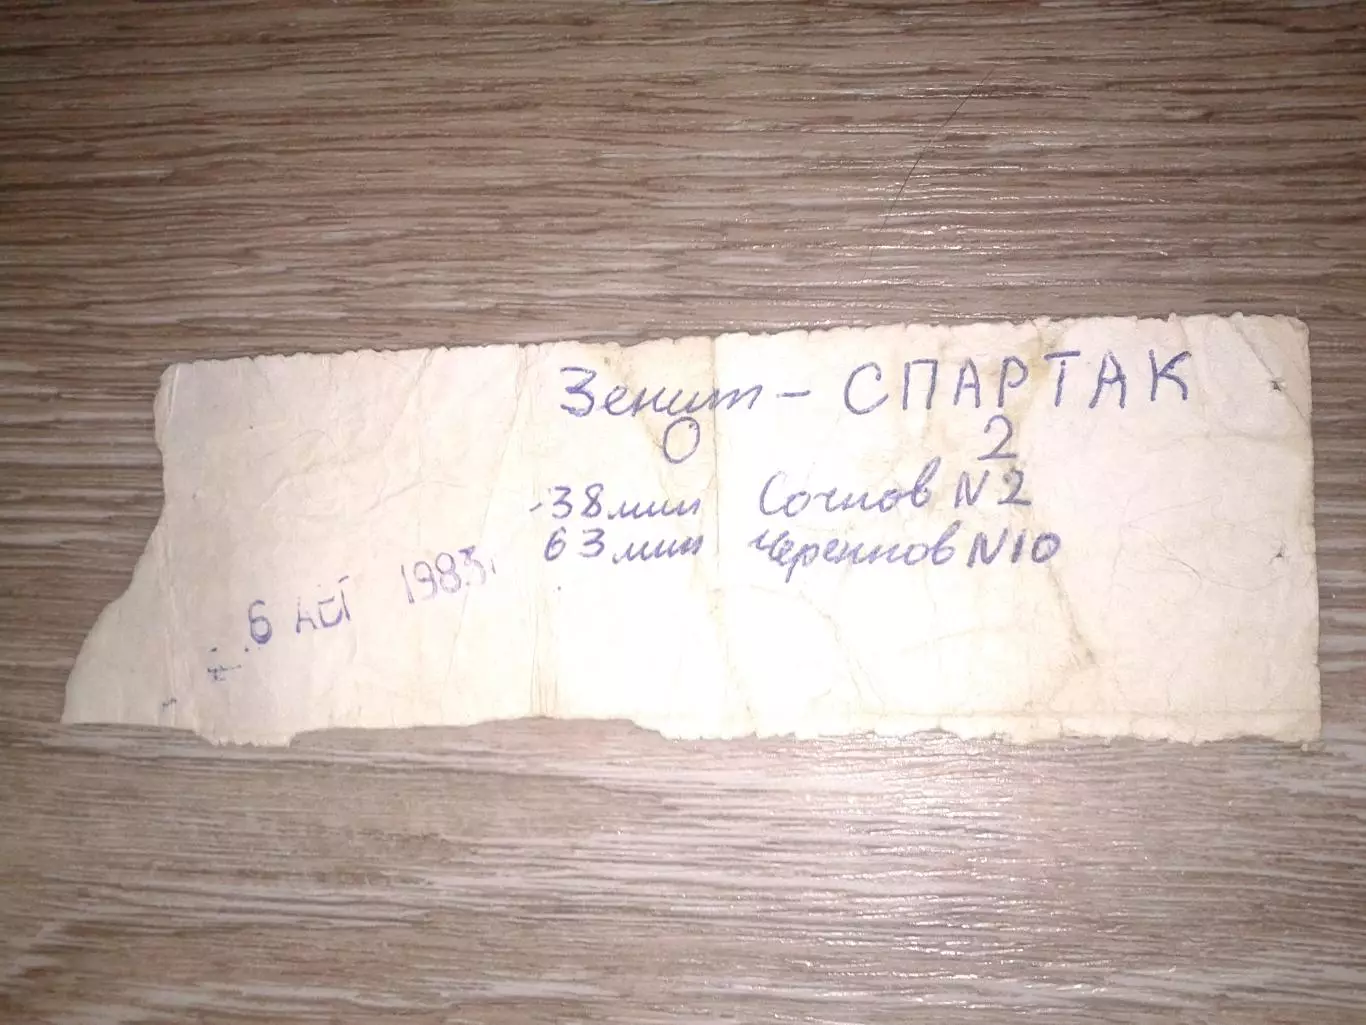 Зенит – СПАРТАК
0 2
38 мин Сочнов N2
63 мин Черенков N10
6 АВГ 1983